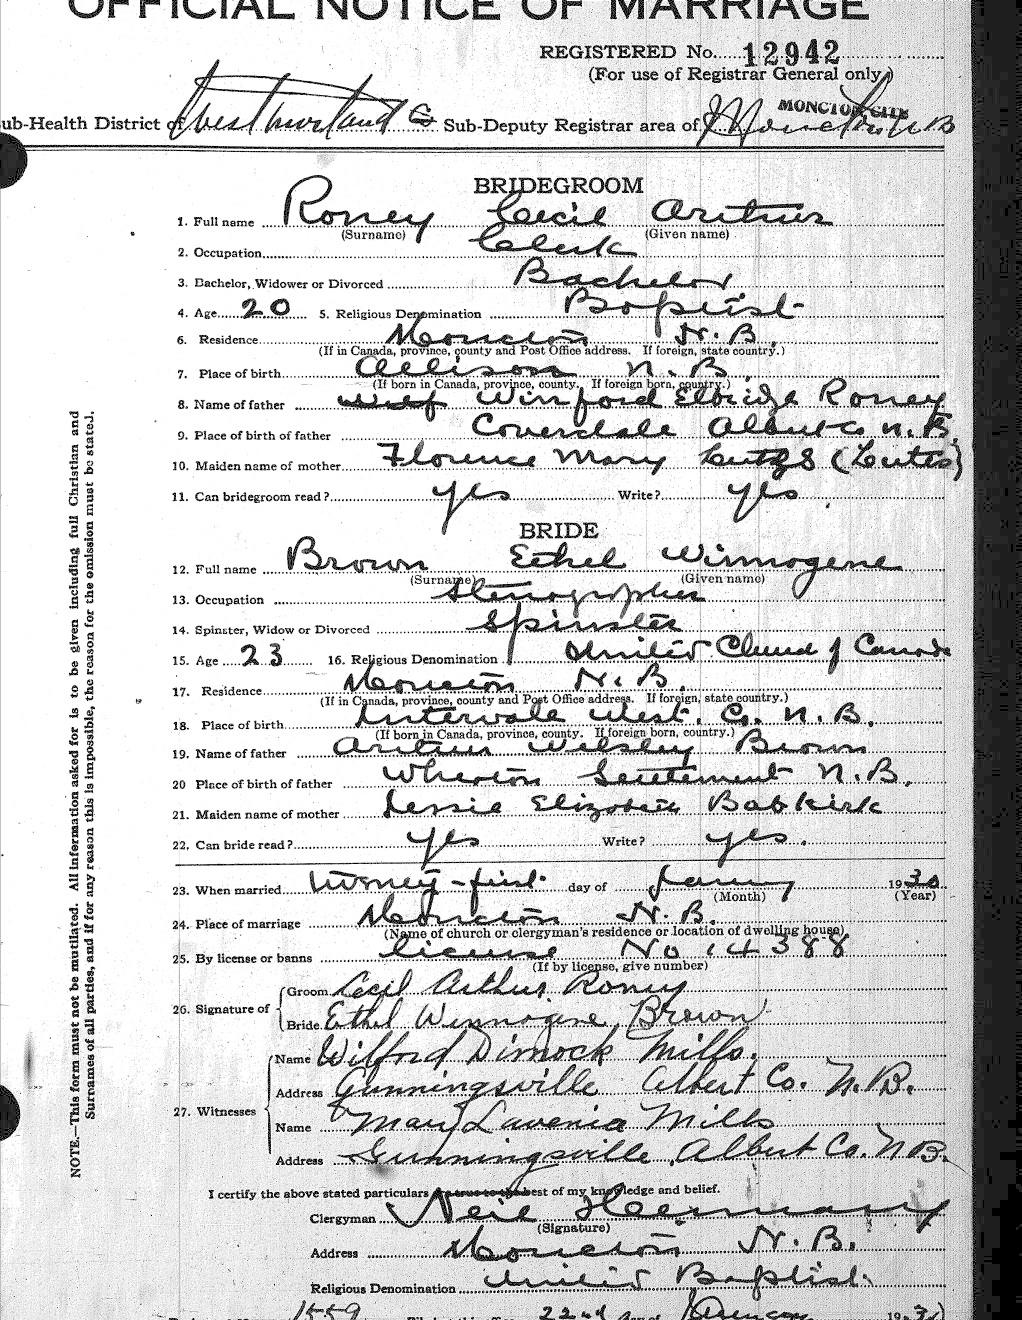 OFFICIAL NOTICE OF MARRIAGE
REGISTERED No. 12942
(For use of Registrar General only)
MONCTON CITY
ub-Health District of Westmorland Co Sub-Deputy Registrar area of Moncton N B
BRIDEGROOM
1. Full name Roney Cecil Arthur
(Surname) (Given name)
2. Occupation Clerk
3. Bachelor, Widower or Divorced Bachelor
4. Age 20 5. Religious Denomination Baptist
6. Residence Moncton N.B.
(If in Canada, province, county and Post Office address. If foreign, state country.)
7. Place of birth Allison N.B.
(If born in Canada, province, county. If foreign born, country.)
8. Name of father Winford Eldridge Roney
9. Place of birth of father Coverdale Albert Co N.B.
10. Maiden name of mother Florence Mary Lutzs (Lutes)
11. Can bridegroom read? yes Write? yes
BRIDE
12. Full name Brown Ethel Winnogene
(Surname) (Given name)
13. Occupation Stenographer
14. Spinster, Widow or Divorced Spinster
15. Age 23 16. Religious Denomination United Church of Canada
17. Residence Moncton N.B.
(If in Canada, province, county and Post Office address. If foreign, state country.)
18. Place of birth Intervale West. Co. N.B.
(If born in Canada, province, county. If foreign born, country.)
19. Name of father Arthur Welsley Brown
20 Place of birth of father Wheaton Settlement N.B.
21. Maiden name of mother Jessie Elizabeth Babkirk
22. Can bride read? yes Write? yes.
23. When married twenty-first day of January 1930
(Month) (Year)
24. Place of marriage Moncton N.B.
(Name of church or clergyman's residence or location of dwelling house)
25. By license or banns license No 14388
(If by license, give number)
26. Signature of
Groom Cecil Arthur Roney
Bride. Ethel Winnogene Brown
27. Witnesses
Name Wilford Dimock Mills.
Address Gunningsville Albert Co. N.B.
Name Mary Lavenia Mills
Address Gunningsville, Albert Co. N.B.
I certify the above stated particulars are true to the best of my knowledge and belief.
Clergyman Neil Herman
(Signature)
Address Moncton N.B.
Religious Denomination United Baptist.
1559 22nd day of January 1930
NOTE.—This form must not be mutilated. All information asked for is to be given including full Christian and
Surnames of all parties, and if for any reason this is impossible, the reason for the omission must be stated.